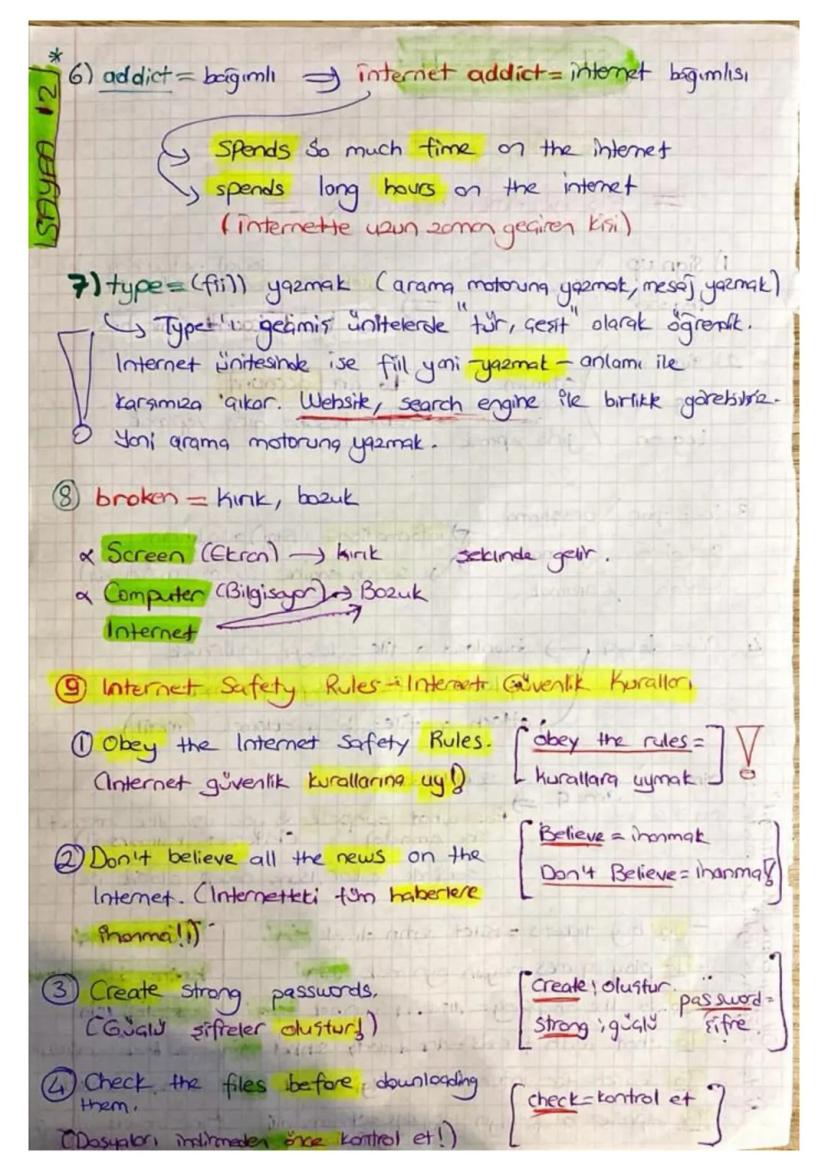 *
SAYFA 12
6) addict = bağımlı => internet addict = internet bağımlısı
spends so much time on the internet
spends long hours on the internet
(internette uzun zaman geçiren kişi)
7) type = (fiil) yazmak (arama motoruna yazmak, mesaj yazmak)
! ↳ Type'ı geçmiş ünitelerde "tür, çeşit" olarak öğrendik.
Internet ünitesinde ise fiil yani -yazmak- anlamı ile
karşımıza çıkar. Website, search engine ile birlikte görebiliriz.
Yani arama motoruna yazmak.
8) broken = kırık, bozuk
∝ Screen (Ekran) → kırık şeklinde gelir.
∝ Computer (Bilgisayar) → Bozuk
Internet
9) Internet Safety Rules - Internet Güvenlik Kuralları
1) Obey the Internet Safety Rules. [obey the rules =
(Internet güvenlik kurallarına uy!) kurallara uymak] !
2) Don't believe all the news on the [Believe = inanmak
Internet. (Internetteki tüm haberlere Don't Believe = inanma!]
inanma!)
3) Create strong passwords. [Create; oluştur. password =
(Güçlü şifreler oluştur!) strong; güçlü şifre]
4) Check the files before downloading
them. [check = kontrol et]
(Dosyaları indirmeden önce kontrol et!)